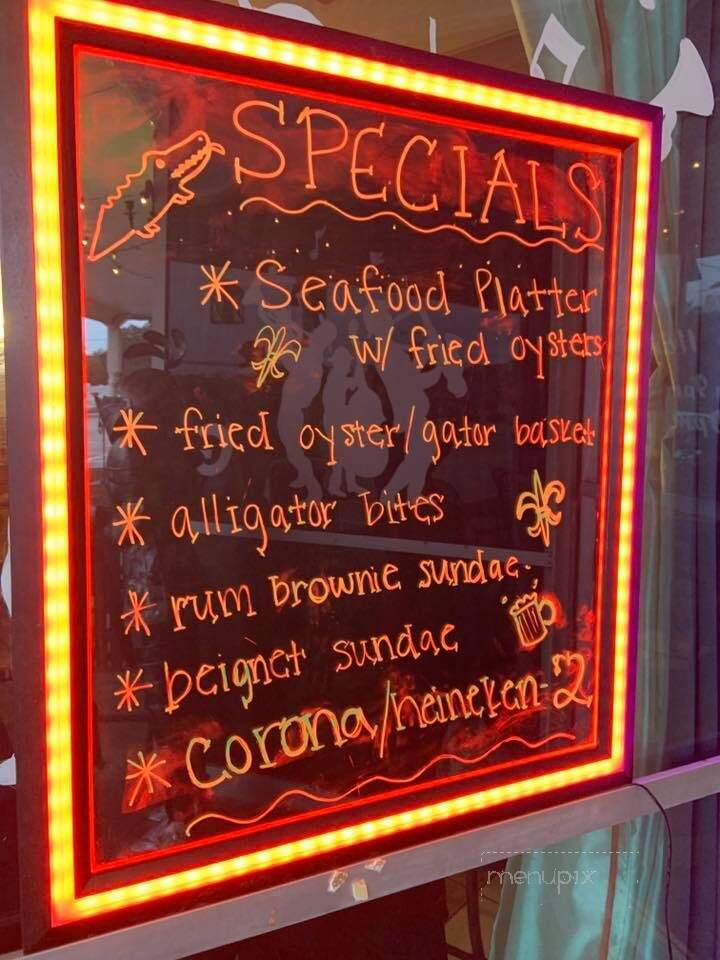 SPECIALS
* Seafood Platter
w/ fried oysters
* fried oyster/gator basket
* alligator bites
* rum brownie sundae
* beignet sundae
* Corona/heineken-$2
menupix